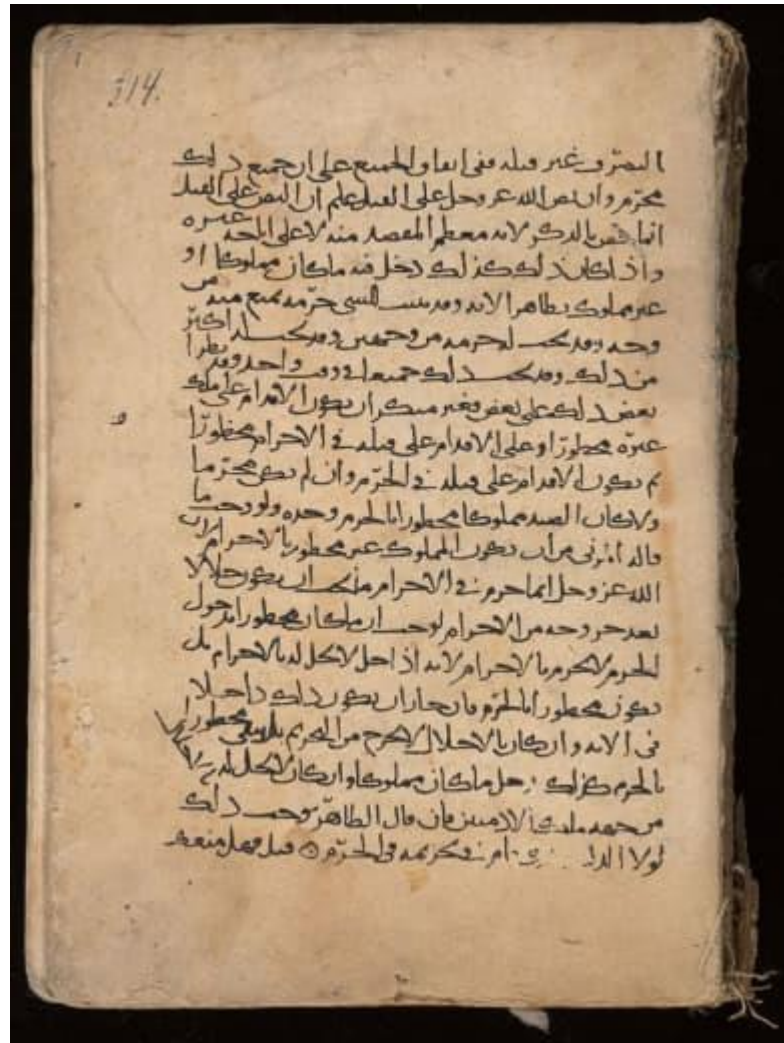 314.
وغير قبله ففى اتفاق الجميع على ان جميع ذلك
محرم وان نص الله عز وجل على القتل علم ان النص على القتل
انما خص بالذكر لانه معظم المقصد منه لا على غيره
واذا كان ذلك كذلك دخل فيه ما كان مملوكا او
غير مملوك بظاهر الايه وقد الشى حرمه يمنع منه من
وجه وقد لحرمه من وجهين وقد اكثر
من ذلك وقد ذلك جميعا فى وقت واحد وقد يطرا
بعض ذلك على بعض فغير منكر ان يكون الاقدام على ملك
غيره محظورا وعلى الاقدام على قتله فى الاحرام محظورا
ثم يكون الاقدام على قتله فى الحرم وان لم يكن محرما
ولا كان الصيد مملوكا محظورا بالحرم وحده ولو وجب ما
قاله من ان يكون المملوك غير محظور بالاحرام لان
الله عز وجل انما حرم فى الاحرام ما يجب ان يكون حلالا
بعد خروجه من الاحرام لوجب ان ما كان محظورا بدخول
الحرم لا يحرم بالاحرام لانه اذا حل لا يحل له بالاحرام بل
يكون محظورا بالحرم فان جاز ان يكون ذلك داخلا
فى الايه وان كان بالاحلال لا يخرج من التحريم محظورا
بالحرم كذلك دخل ما كان مملوكا وان كان لا يحل له
من جهه ملك الادميين فان قال الظاهر يوجب ذلك
لولا فى تحريمه فى الحرم ۞ قيل فهل